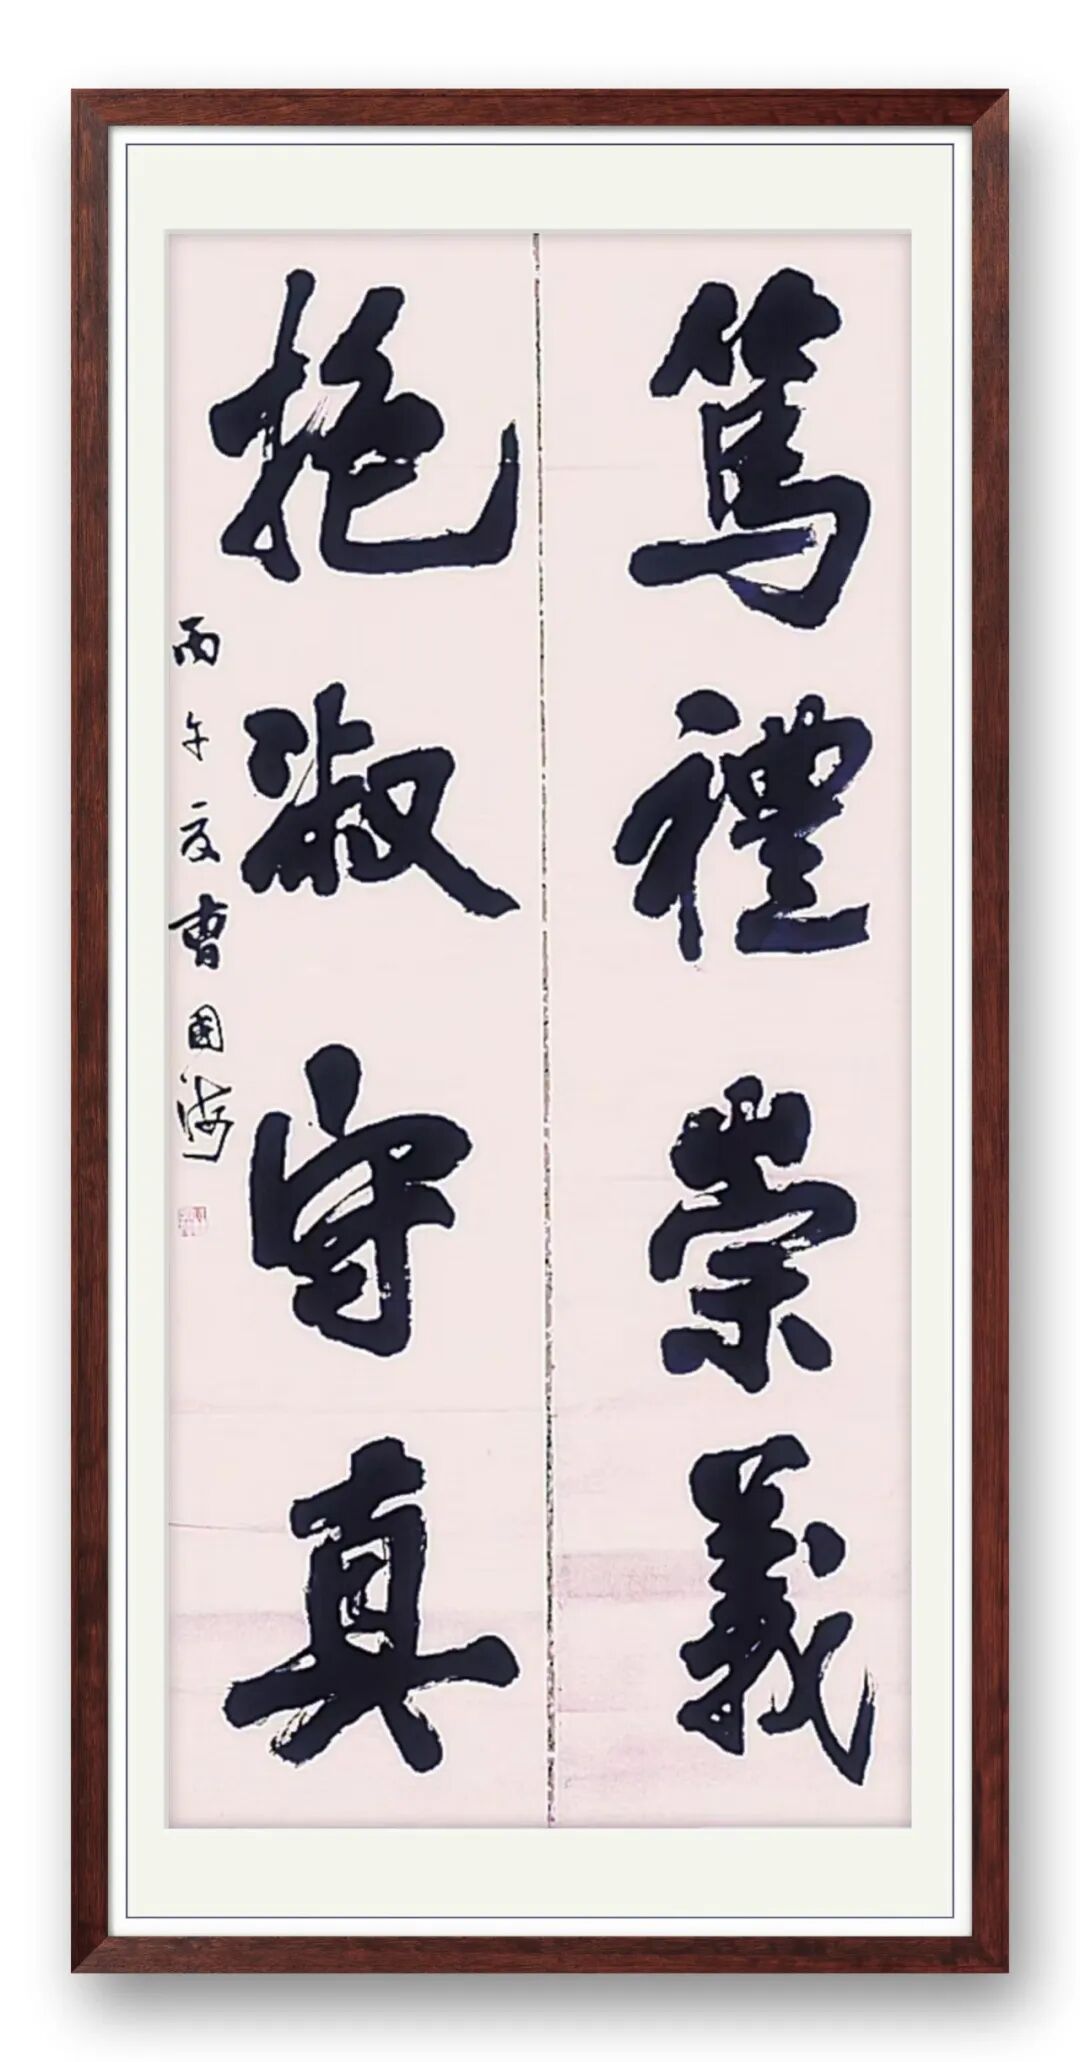 篤禮崇義
抱淑守真
丙午夏曹國海